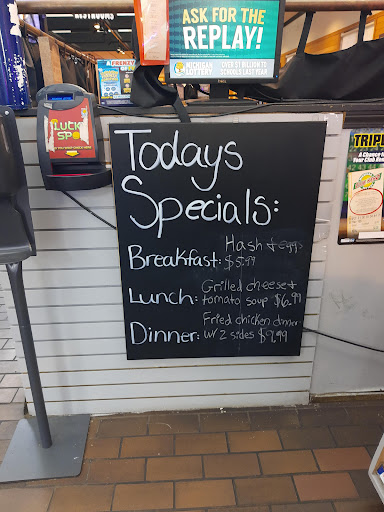 RESTROOMS
ASK FOR THE
REPLAY!
MICHIGAN
LOTTERY
OVER $1 BILLION TO
SCHOOLS LAST YEAR
FRENZY
LUCKY
SPOT
TRIPL
A Chance
Your Club Key
Todays
Specials:
Breakfast: Hash & eggs
$5.99
Lunch: Grilled cheese &
tomato soup $6.99
Dinner: Fried chicken dinner
w/ 2 sides $9.99